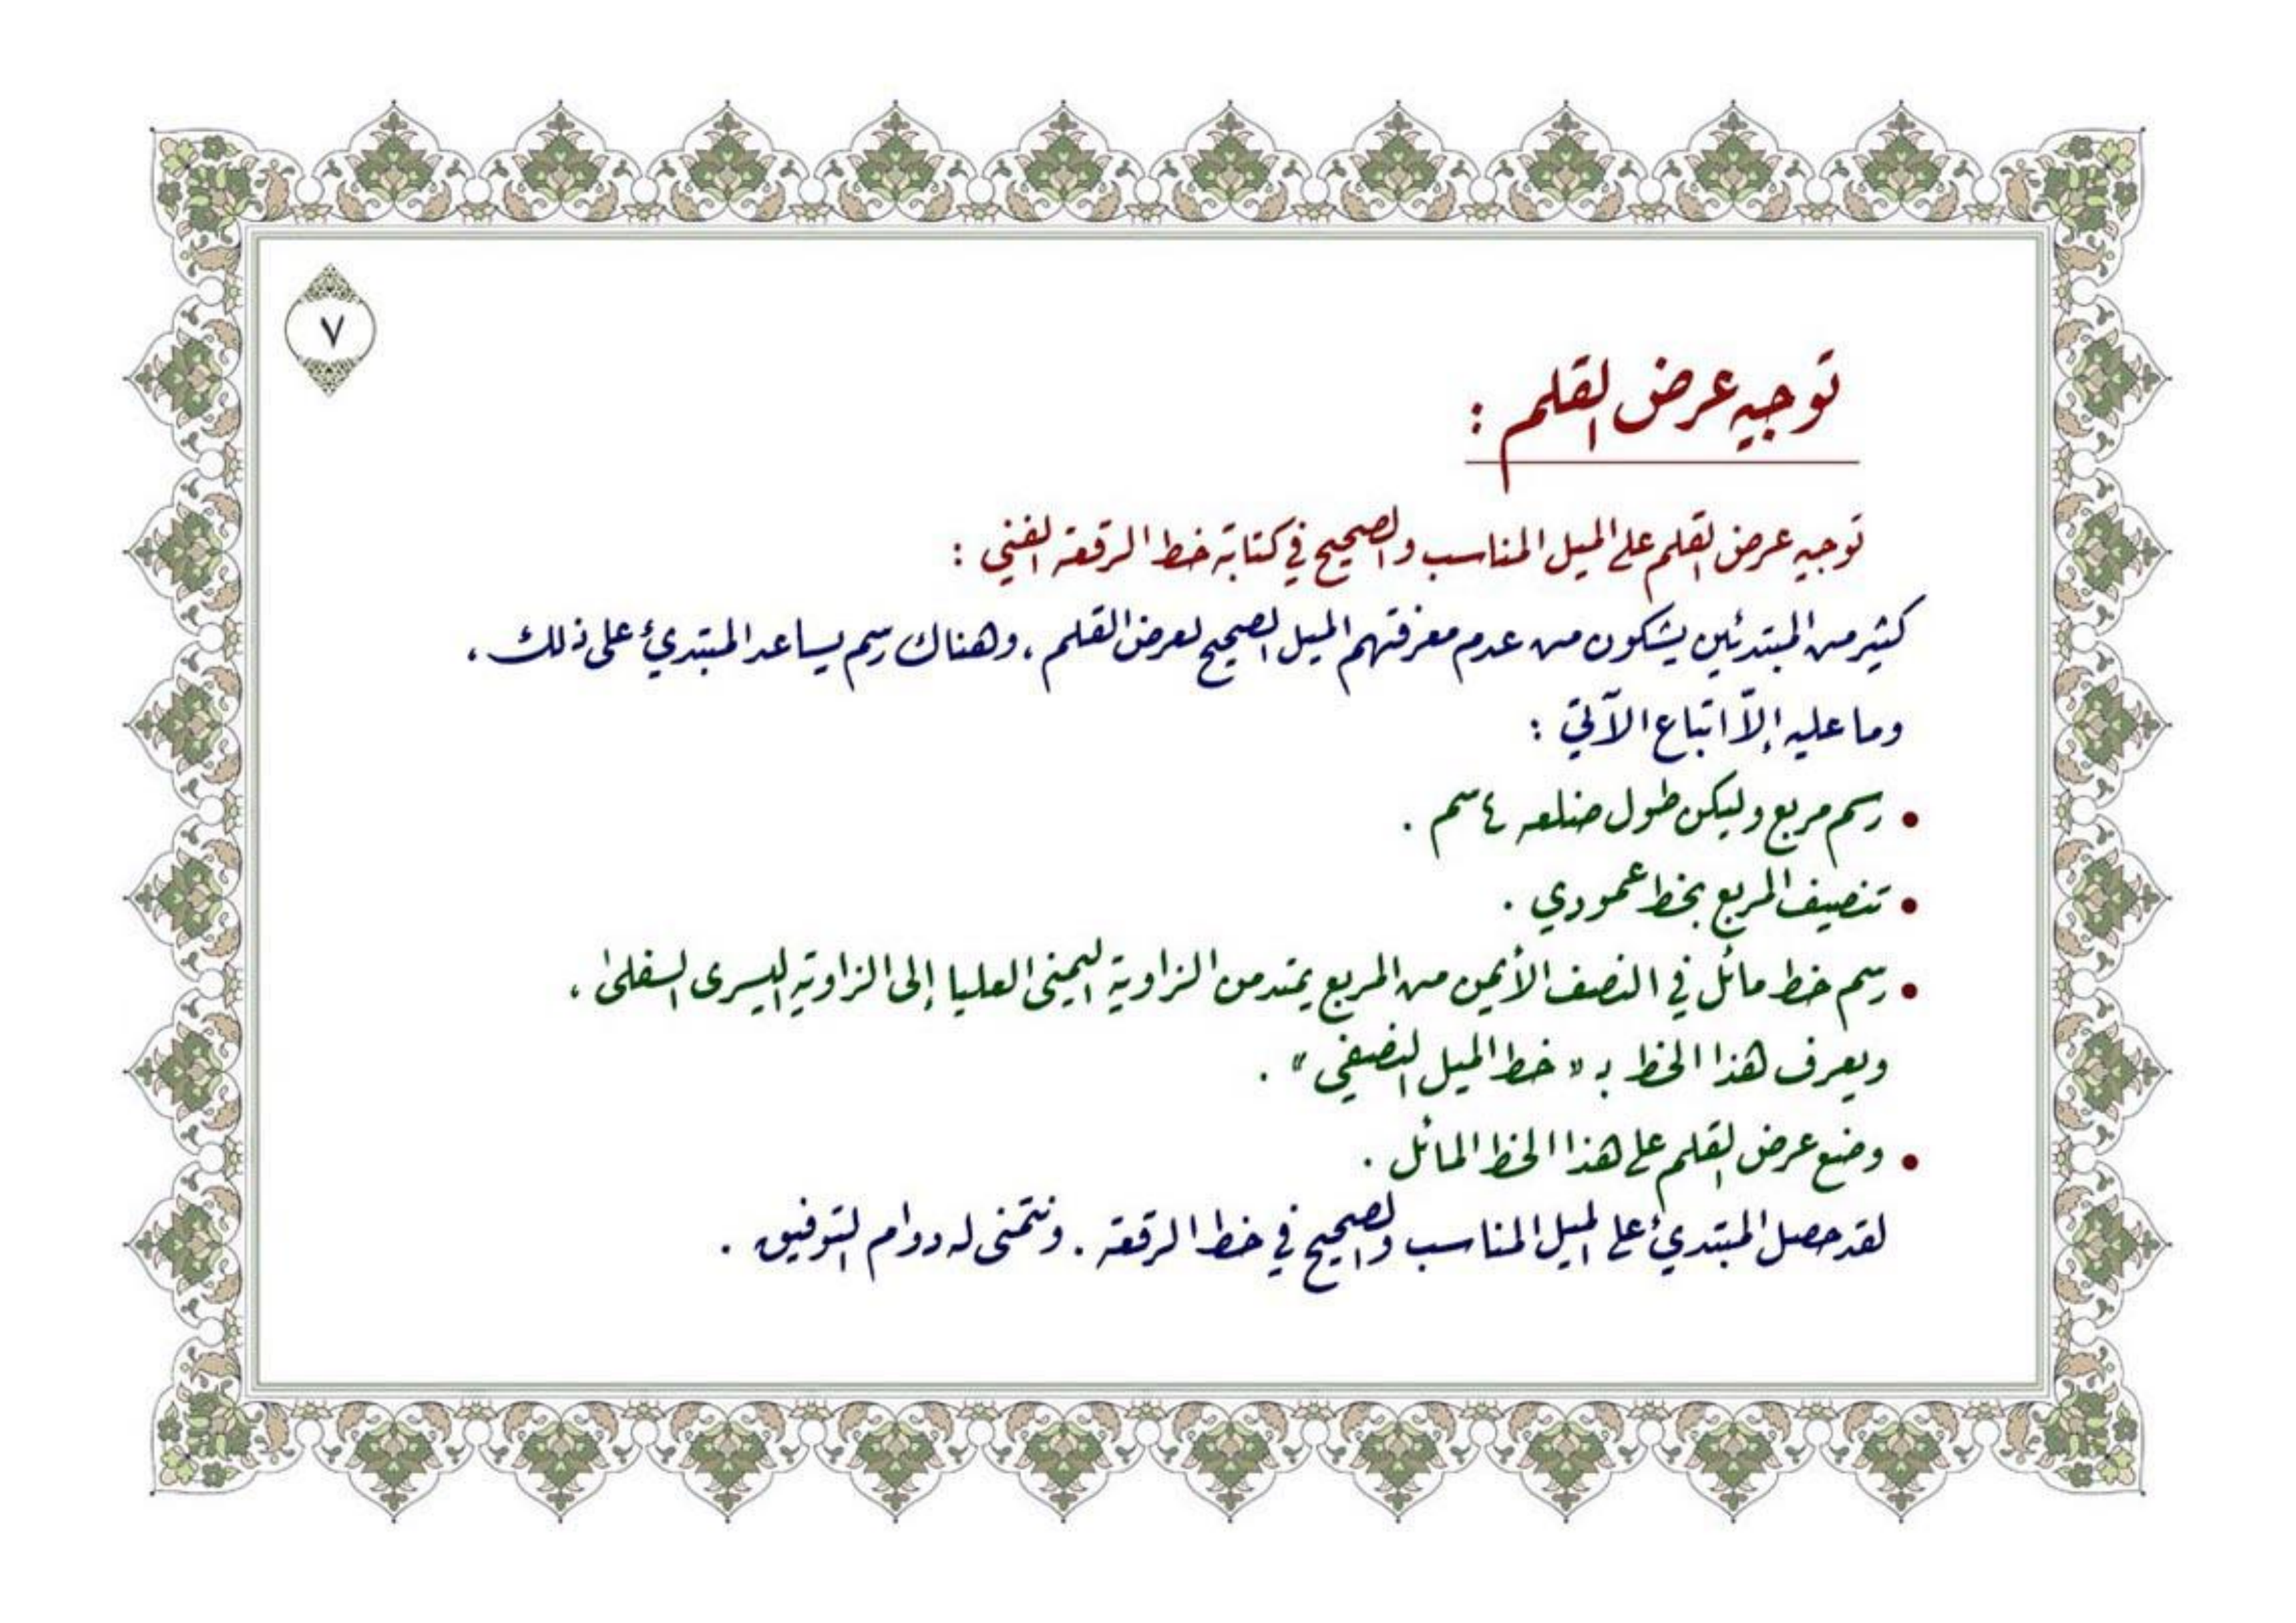 ٧
توجيه عرض القلم :
توجيه عرض القلم على الميل المناسب والصحيح في كتابة خط الرقعة الفني :
كثير من المبتدئين يشكون من عدم معرفتهم الميل الصحيح لعرض القلم ، وهناك رسم يساعد المبتدئ على ذلك ،
وما عليه إلاّ اتباع الآتي :
• رسم مربع وليكن طول ضلعه ٤ سم .
• تنصيف المربع بخط عمودي .
• رسم خط مائل في النصف الأيمن من المربع يمتد من الزاوية اليمنى العليا إلى الزاوية اليسرى السفلى ،
ويعرف هذا الخط بـ « خط الميل النصفي » .
• وضع عرض القلم على هذا الخط المائل .
لقد حصل المبتدئ على الميل المناسب والصحيح في خط الرقعة . ونتمنى له دوام التوفيق .